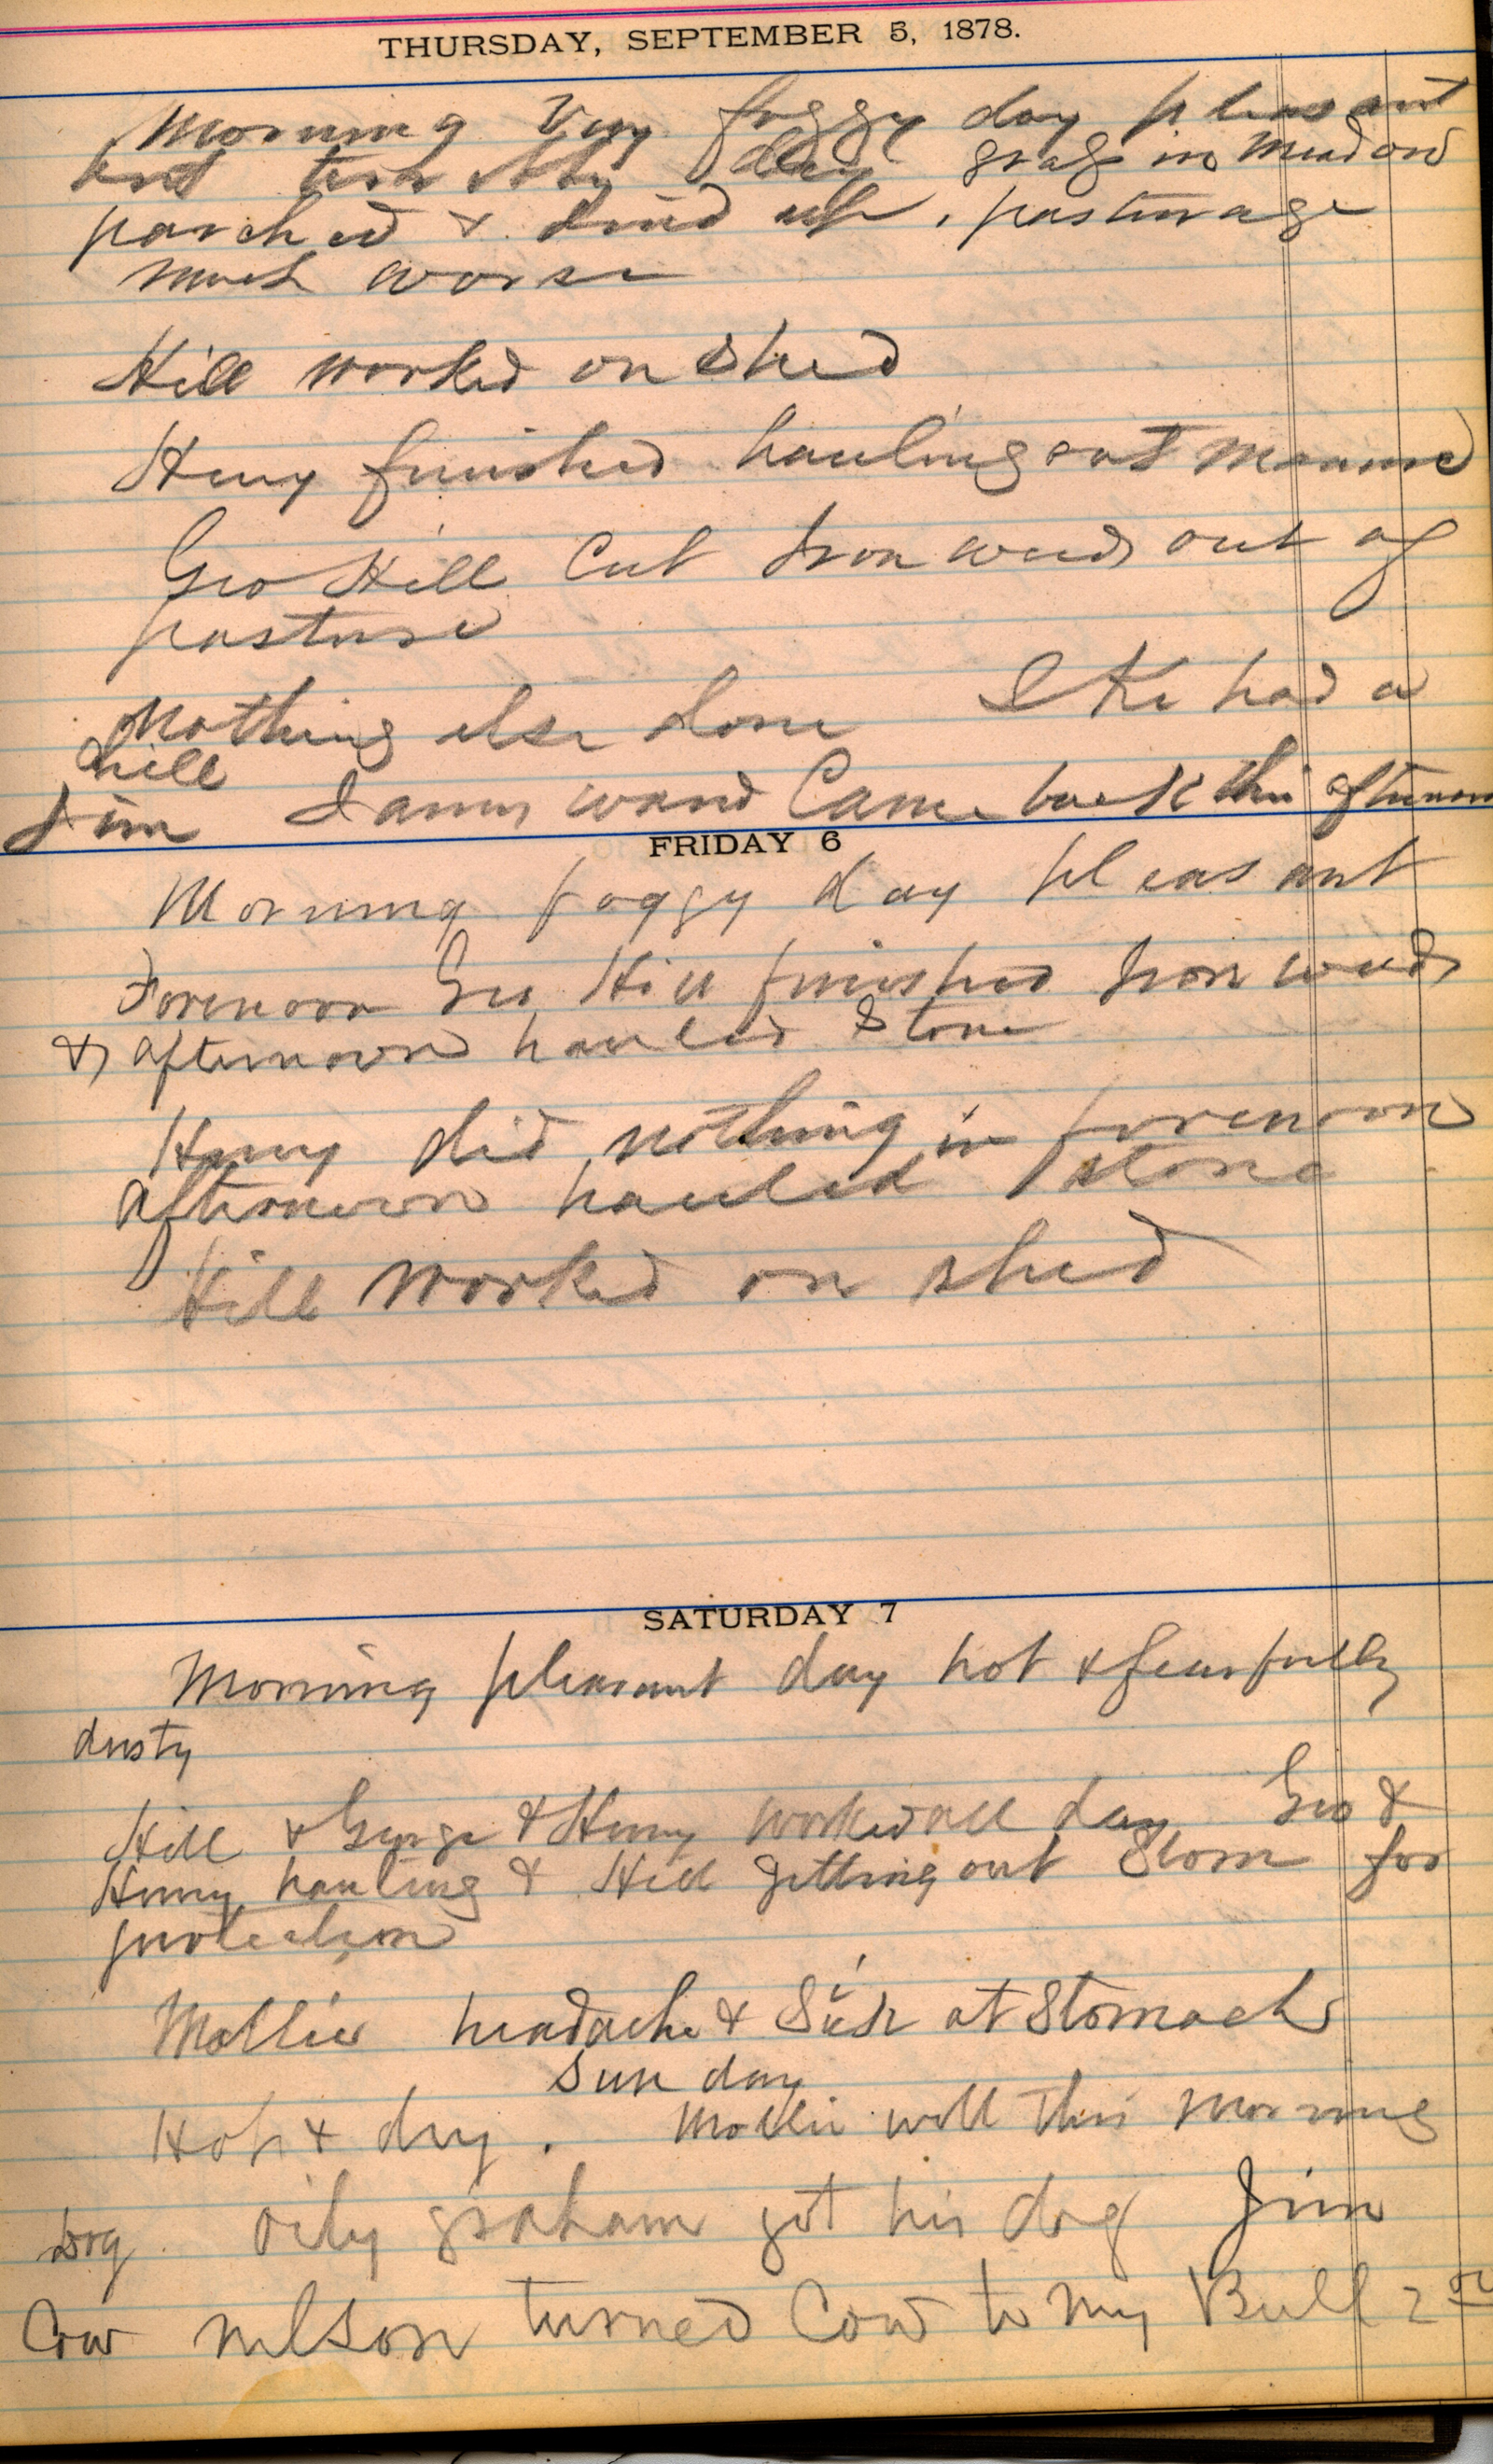 THURSDAY, SEPTEMBER 5, 1878.
Morning very foggy day pleasant
but terribly dry grass in meadow
parched & dried up, pasturage
much worse
Hill worked on shed
Henry finished hauling out manure
Geo Hill Cut Iron weeds out of
pasture
Nothing else done Ike had a
chill
Jim Came back this afternoon
FRIDAY 6
Morning foggy day pleasant
Forenoon Geo Hill finished Iron weeds
& afternoon hauled Stone
Henry did nothing in forenoon
Afternoon hauled stone
Hill worked on shed
SATURDAY 7
Morning pleasant day hot & fearfully
dusty
Hill & George & Henry worked all day Geo &
Henry hauling & Hill getting out Stone for
protection
Mollie headache & Sick at Stomach
Sunday
Hot & dry. Mollie well this morning
Dog graham got his dog Jim
Cow nelson turned Cow to my Bull 2